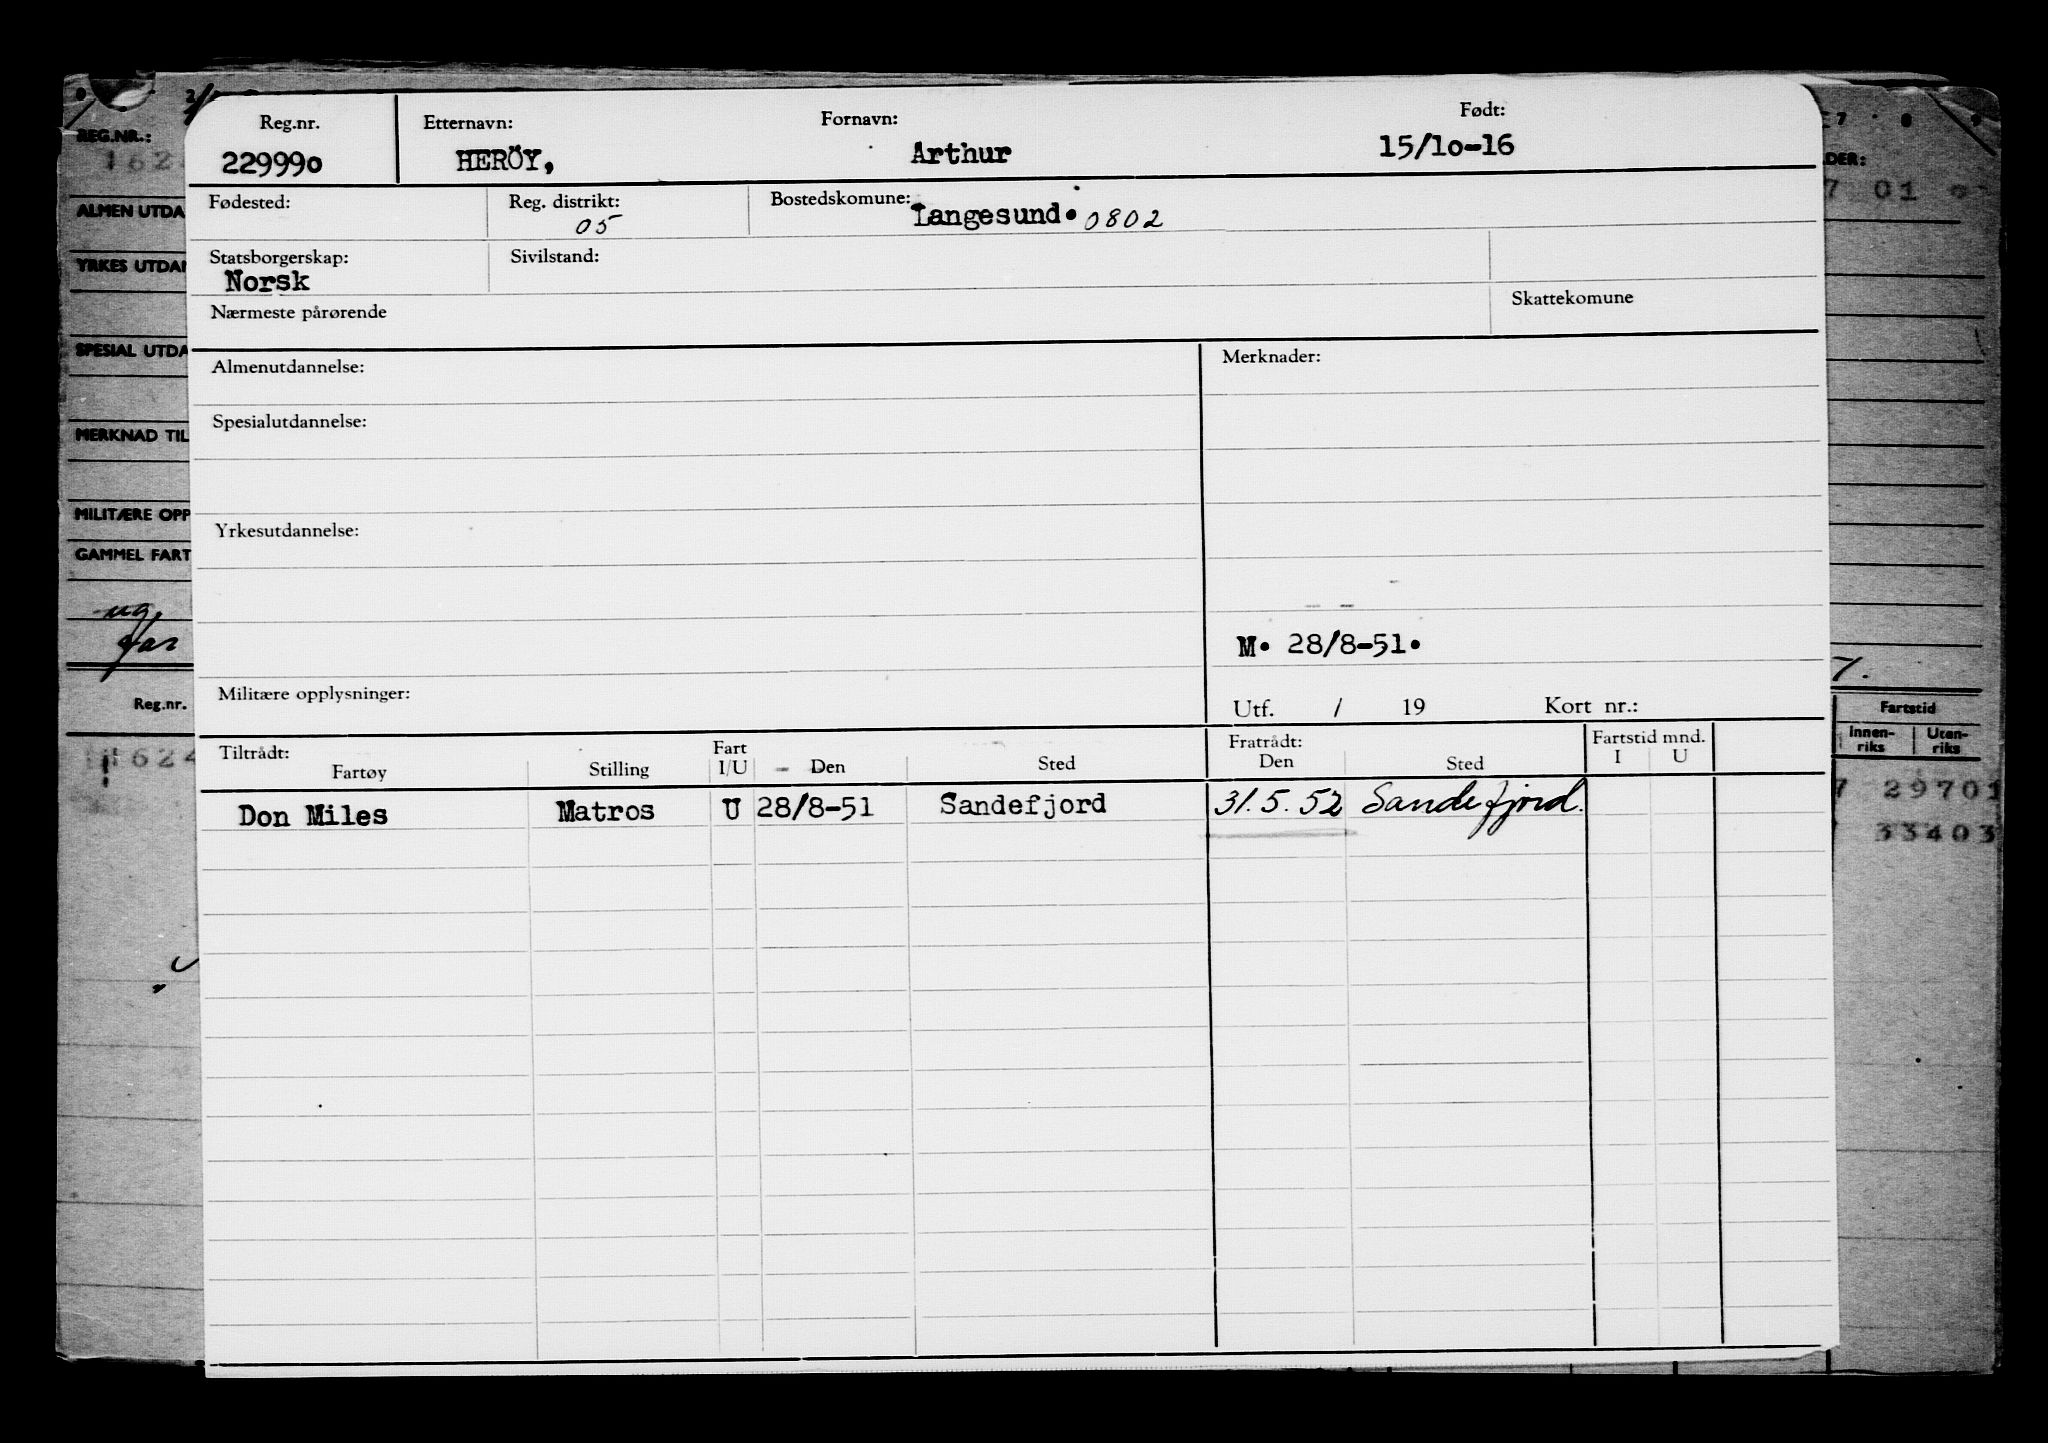 REG.NR.:
ALMEN UTDA
YRKES UTDAN
SPESIAL UTDA
MERKNAD TIL
MILITÆRE OPP
GAMMEL FART
Reg.nr.
Reg.nr. Etternavn: Fornavn: Født:
22999o HERÖY, Arthur 15/1o-16
Fødested: Reg. distrikt: Bostedskomune:
05 Langesund. 0802
Statsborgerskap: Sivilstand:
Norsk
Nærmeste pårørende Skattekomune
Almenutdannelse: Merknader:
Spesialutdannelse:
Yrkesutdannelse:
M. 28/8-51.
Militære opplysninger:
Utf. / 19 Kort nr.:
Tiltrådt: Fart Fratrådt: Fartstid mnd.
Fartøy Stilling I/U Den Sted Den Sted I U
Don Miles Matros U 28/8-51 Sandefjord 31.5.52 Sandefjord.
DER:
7 01
7.
Fartstid
Innen-
riks
Uten-
riks
7 29701
33403